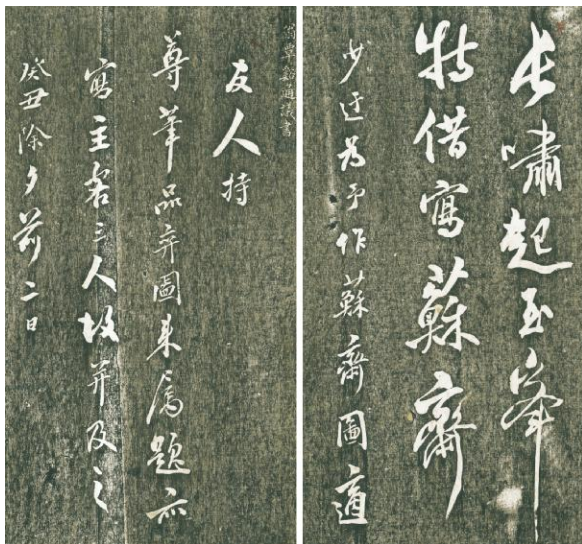 長嘯起玉峯
特借寫蘇齋
少迂為予作蘇齋圖適
翁覃谿書
友人持
尊品弈圖來屬題亦
寫主客三人故并及之
癸丑除夕前二日